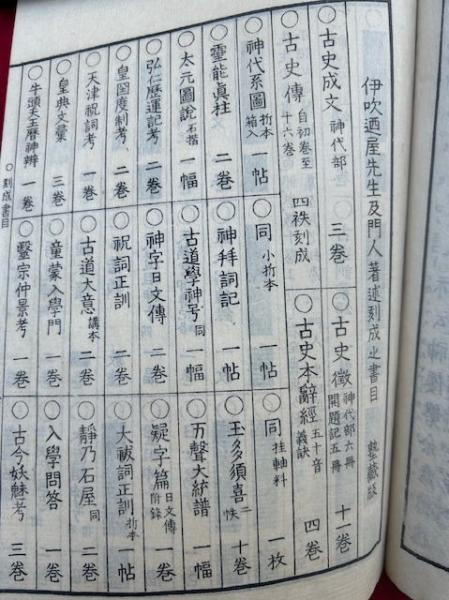 伊吹廼屋先生及門人著述刻成之書目 塾蔵版
○古史成文 神代部 三巻
○古史徴 神代部六冊 開題記五冊 十一巻
○古史傳 自初巻至十六巻 四袟刻成
○古史本辭經 五十音義訣 四巻
○神代系圖 折本箱入 一帖
○同 小折本 一帖
○同 挂軸料 一枚
○靈能眞柱 二巻
○神拜詞記 一帖
○玉多須喜 二帙 十巻
○太元圖說 石摺 一幅
○古道學神号 同 一幅
○五聲大統譜 一幅
○弘仁歴運記考 二巻
○神字日文傳 二巻
○疑字篇 日文傳附録 一巻
○皇國度制考 二巻
○祝詞正訓 二巻
○大祓詞正訓 折本 一帖
○天津祝詞考 一巻
○古道大意 講本 二巻
○靜乃石屋 同 二巻
○皇典文彙 三巻
○童蒙入學門 一巻
○入學問答 一巻
○牛頭天王暦神辨 一巻
○醫宗仲景考 一巻
○古今妖魅考 三巻
○刻成書目